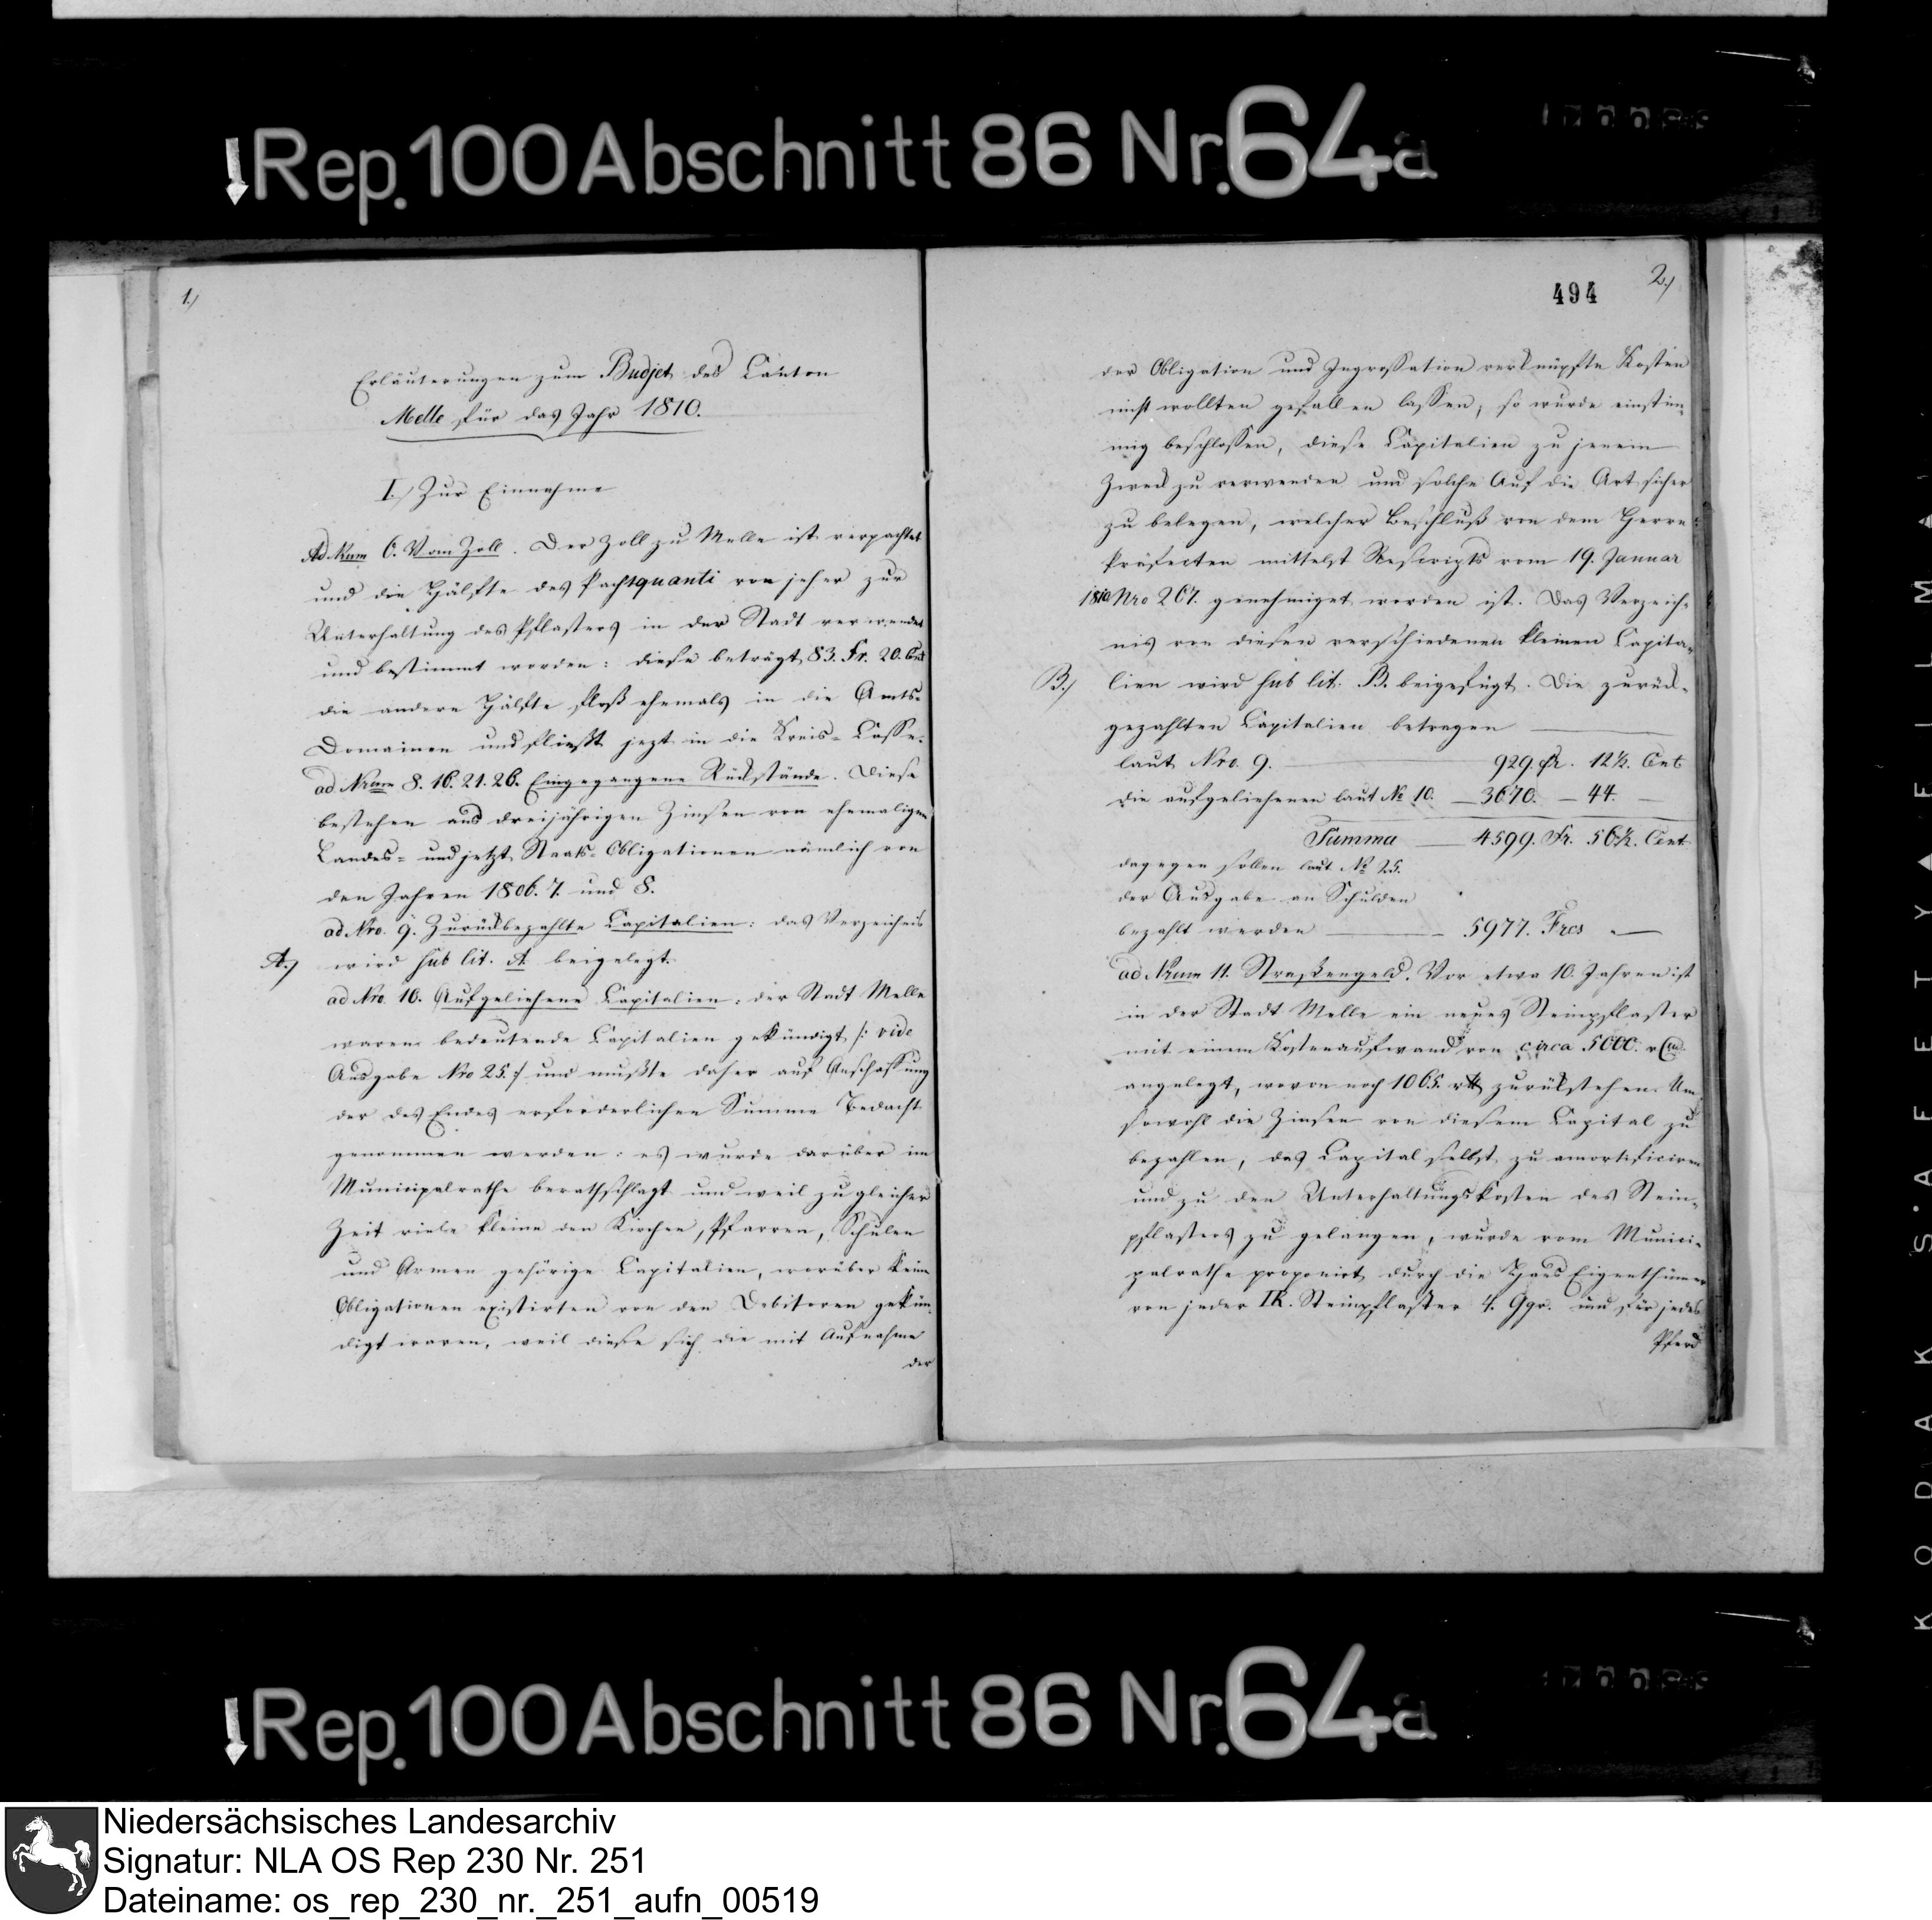 Rep. 100 Abschnitt 86 Nr. 64a
1.)
Erläuterungen zum Budjet des Canton
Melle für das Jahr 1810.
I.) Zur Einnahme
Ad Num 6. Vom Zoll. Der Zoll zu Melle ist verpachtet
und die Hälfte des Pachtquanti von jeher zur
Unterhaltung des Pflasters in der Stadt verwendet
und bestimmt worden: diese beträgt 83. Fr. 20. Cent
die andere Hälfte floß ehemals in die Amts-
Domainen und fließt jezt in die Kreis-Casse.
ad Nrum 8. 16. 21. 26. Eingegangene Rückstände. Diese
bestehen aus dreijährigen Zinsen von ehemaligen
Landes- und jetzt Staats-Obligationen nämlich von
den Jahren 1806. 7. und 8.
ad Nro. 9. Zurückbezahlte Capitalien: das Verzeichnis
A.) wird sub lit. A. beigelegt.
ad Nro. 10. Aufgeliehene Capitalien: der Stadt Melle
waren bedeutende Capitalien gekündigt /: vide
Ausgabe Nro 25. :/ und mußte daher auf Anschaffung
der des Endes erforderlichen Summe Bedacht
genommen werden: es wurde darüber im
Municipalrathe berathschlagt und weil zu gleicher
Zeit viele kleine den Kirchen, Pfarren, Schulen
und Armen gehörige Capitalien, worüber keine
Obligationen existirten von den Debitoren gekün-
digt waren, weil diese sich die mit Aufnahme
der
494
2.)
der Obligation und Ingrossation verknüpfte Kosten
nicht wollten gefallen lassen, so wurde einstim-
mig beschlossen, diese Capitalien zu jenem
Zweck zu verwenden und solche Auf die Art sicher
zu belegen, welcher Beschluß von dem Herrn
Präfecten mittelst Rescripts vom 19. Januar
1810 Nro 267. genehmiget worden ist. Das Verzeich-
nis von diesen verschiedenen kleinen Capita-
B.) lien wird sub lit. B. beigefügt. Die zurück-
gezahlten Capitalien betragen
laut Nro. 9. 929. Fr. 12½. Cent
die aufgeliehenen laut No 10. 3670. 44.
Summa 4599. Fr. 56½. Cent
dagegen sollen laut No 25.
der Ausgabe an Schulden
bezahlt werden 5977. Frcs
ad Nrum 11. Straßengeld. Vor etwa 10. Jahren ist
in der Stadt Melle ein neues Steinpflaster
mit einem Kostenaufwand von circa 5000.
angelegt, wovon noch 1065. zurükstehen. Um
sowohl die Zinsen von diesem Capital zu
bezahlen, das Capital selbst zu amortificiren
und zu den Unterhaltungskosten des Stein-
pflasters zu gelangen, wurde vom Munici-
palrathe proponirt, durch die Haus Eigenthümer
von jeder Steinpflaster 4. Ggr. und für jedes
Pferd
Rep. 100 Abschnitt 86 Nr. 64a
KODAK S'AFETY FILM
Niedersächsisches Landesarchiv
Signatur: NLA OS Rep 230 Nr. 251
Dateiname: os_rep_230_nr._251_aufn_00519